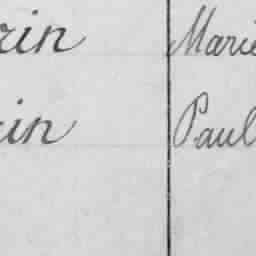 rin Marie
rin Paul